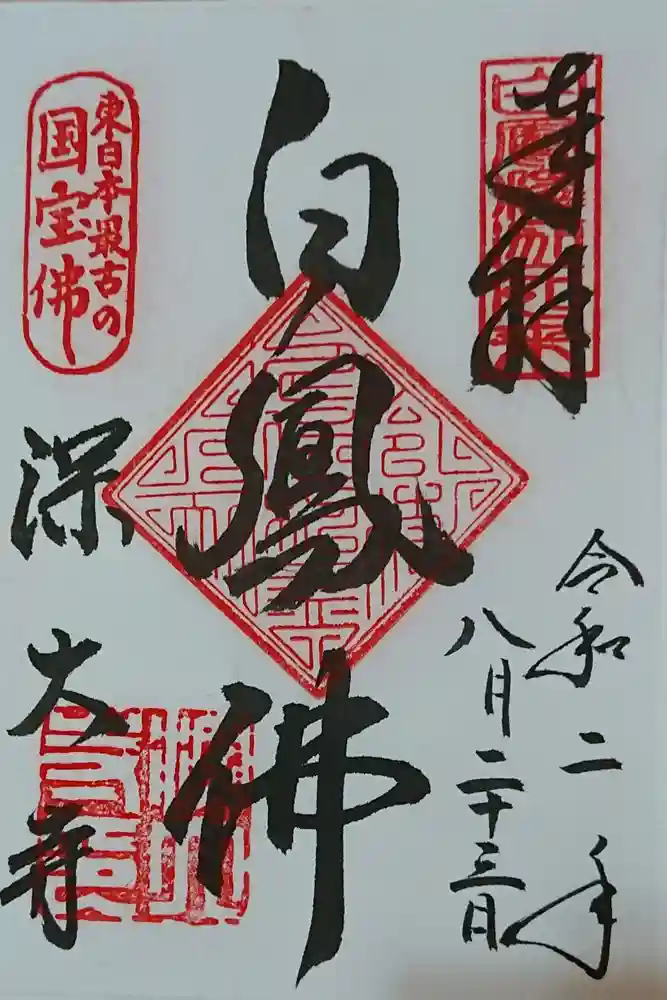 奉拝
令和二年
八月二十三日
白鳳佛
東日本最古の
国宝佛
深大寺